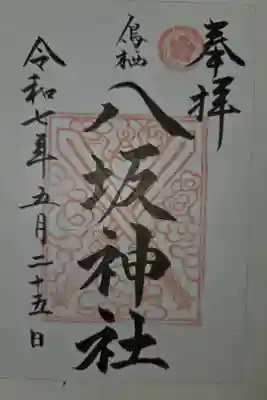 奉拝
鳥栖
八坂神社
令和七年 五月二十五日